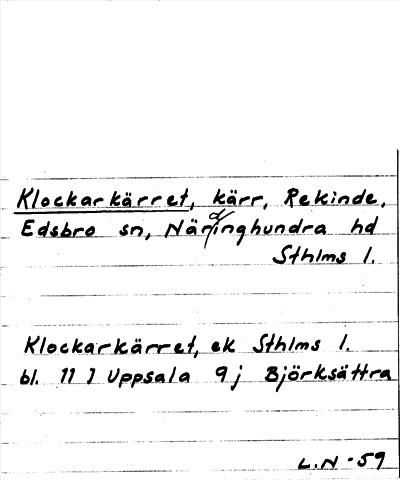 Klockarkärret, kärr, Rekinde,
Edsbro sn, Närdinghundra hd
Sthlms l.
Klockarkärret, ek Sthlms l.
bl. 11 I Uppsala 9j Björksättra
L.N - 59